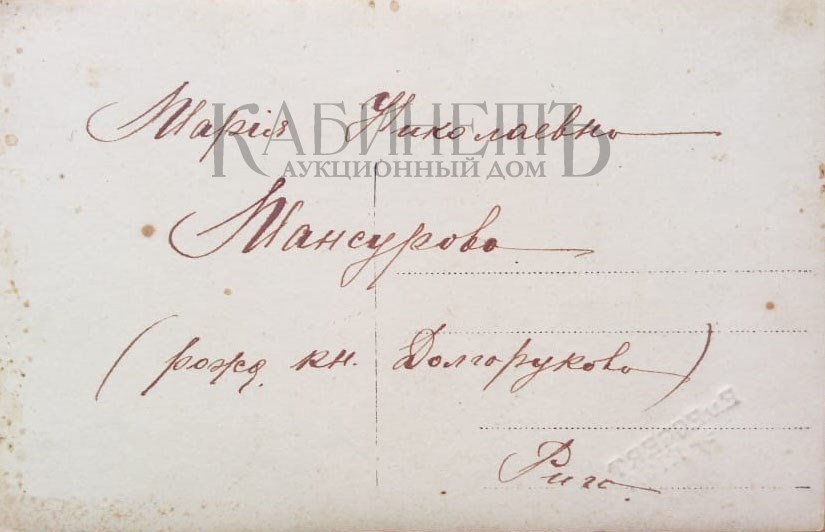 Марія Николаевна
КАБИНЕТЪ
АУКЦИОННЫЙ ДОМ
Мансурова
(рожд. кн. Долгорукова)
Рига.